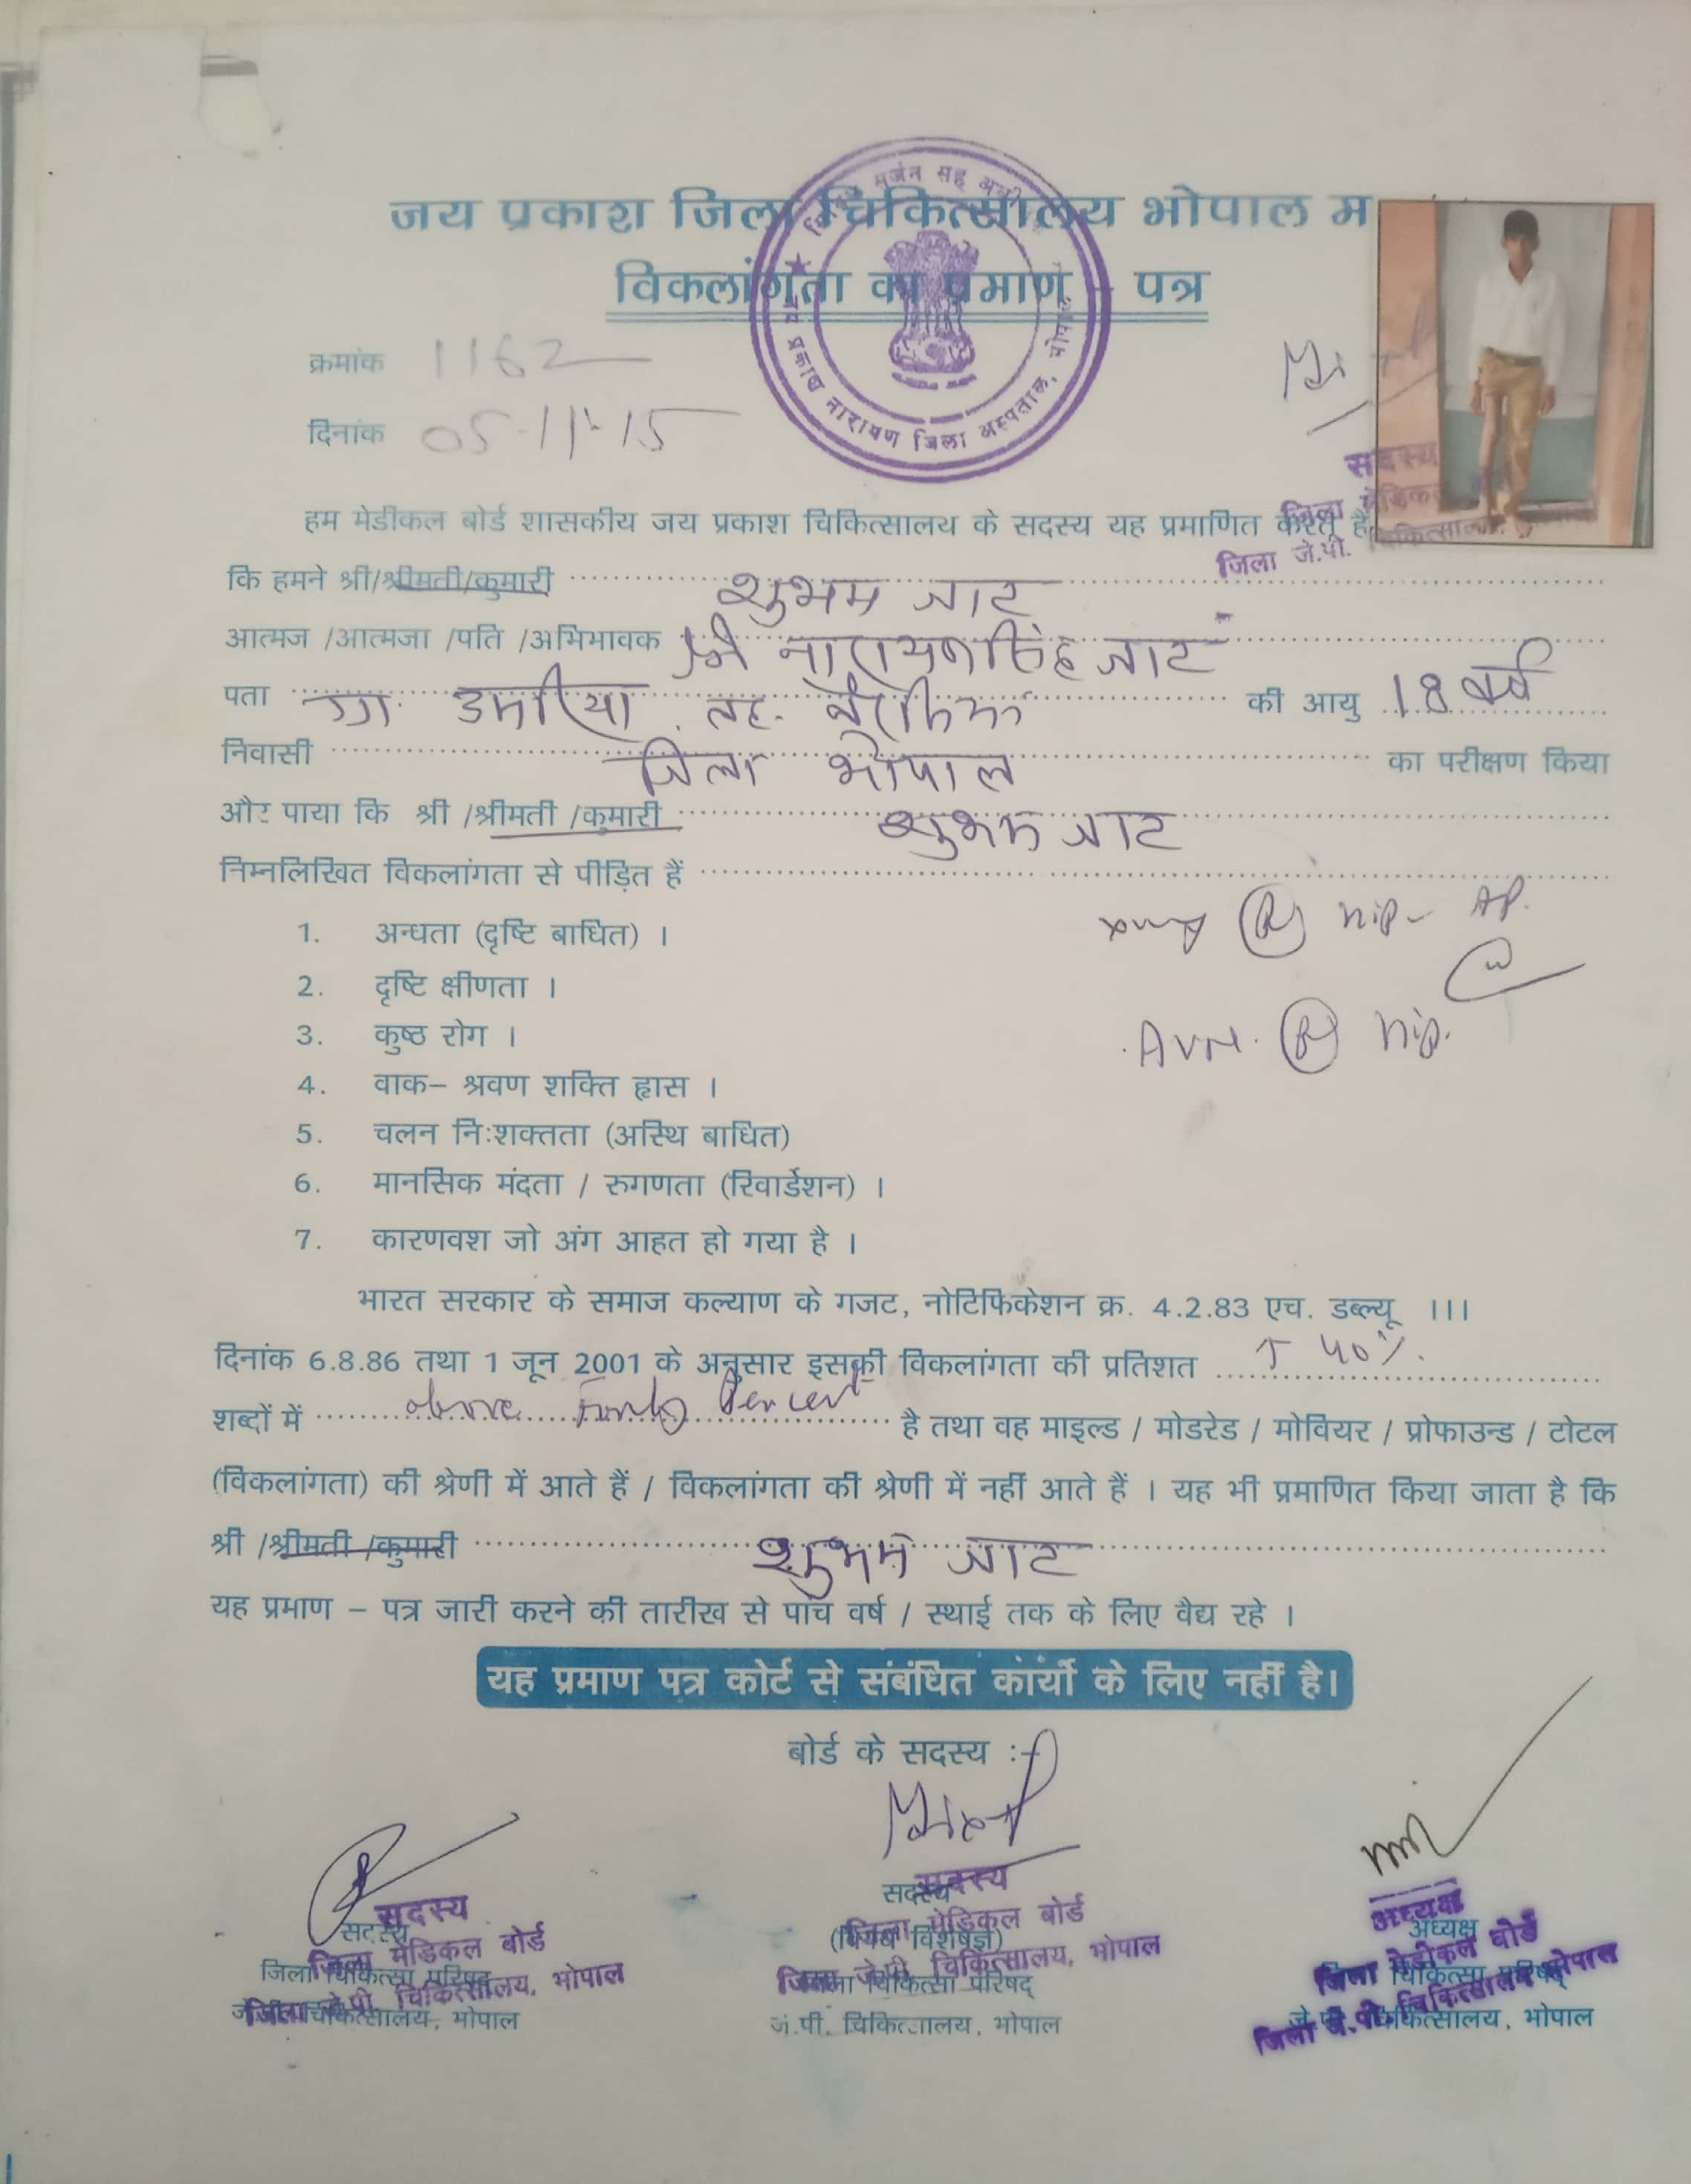 जय प्रकाश जिला चिकित्सालय भोपाल म
विकलांगता का प्रमाण – पत्र
जय प्रकाश नारायण जिला अस्पताल, भोपाल
क्रमांक 1162
दिनांक 05-11-15
सदस्य
जिला मेडिकल
जिला जे.पी. चिकित्सालय
हम मेडीकल बोर्ड शासकीय जय प्रकाश चिकित्सालय के सदस्य यह प्रमाणित करते हैं
कि हमने श्री/श्रीमती/कुमारी शुभम जाट
आत्मज /आत्मजा /पति /अभिभावक श्री नारायणसिंह जाट
पता ग्रा. उमरिया तह. की आयु 18 वर्ष
निवासी जिला भोपाल का परीक्षण किया
और पाया कि श्री /श्रीमती /कुमारी शुभम जाट
निम्नलिखित विकलांगता से पीड़ित हैं
1. अन्धता (दृष्टि बाधित) ।
Xray (R) hip - AP.
2. दृष्टि क्षीणता ।
3. कुष्ठ रोग ।
AVN. (R) hip.
4. वाक– श्रवण शक्ति हृास ।
5. चलन निःशक्तता (अस्थि बाधित)
6. मानसिक मंदता / रुगणता (रिवार्डेशन) ।
7. कारणवश जो अंग आहत हो गया है ।
भारत सरकार के समाज कल्याण के गजट, नोटिफिकेशन क्र. 4.2.83 एच. डब्ल्यू ।।।
दिनांक 6.8.86 तथा 1 जून 2001 के अनुसार इसकी विकलांगता की प्रतिशत ↑ 40%.
शब्दों में above Forty Percent है तथा वह माइल्ड / मोडरेड / मोवियर / प्रोफाउन्ड / टोटल
(विकलांगता) की श्रेणी में आते हैं / विकलांगता की श्रेणी में नहीं आते हैं । यह भी प्रमाणित किया जाता है कि
श्री /श्रीमती /कुमारी शुभम जाट
यह प्रमाण – पत्र जारी करने की तारीख से पांच वर्ष / स्थाई तक के लिए वैद्य रहे ।
यह प्रमाण पत्र कोर्ट से संबंधित कार्यो के लिए नहीं है।
बोर्ड के सदस्य :–
सदस्य सदस्य अध्यक्ष
सदस्य सदस्य अध्यक्ष
जिला मेडिकल बोर्ड जिला मेडिकल बोर्ड जिला मेडीकल बोर्ड
(विषय विशेषज्ञ)
जिला चिकित्सा परिषद् जिला चिकित्सा परिषद् चिकित्सा परिषद्
जिला जे.पी. चिकित्सालय, भोपाल जिला जे.पी. चिकित्सालय, भोपाल जिला जे.पी. चिकित्सालय भोपाल
चिकित्सालय, भोपाल जे.पी. चिकित्सालय, भोपाल जे.पी. चिकित्सालय, भोपाल